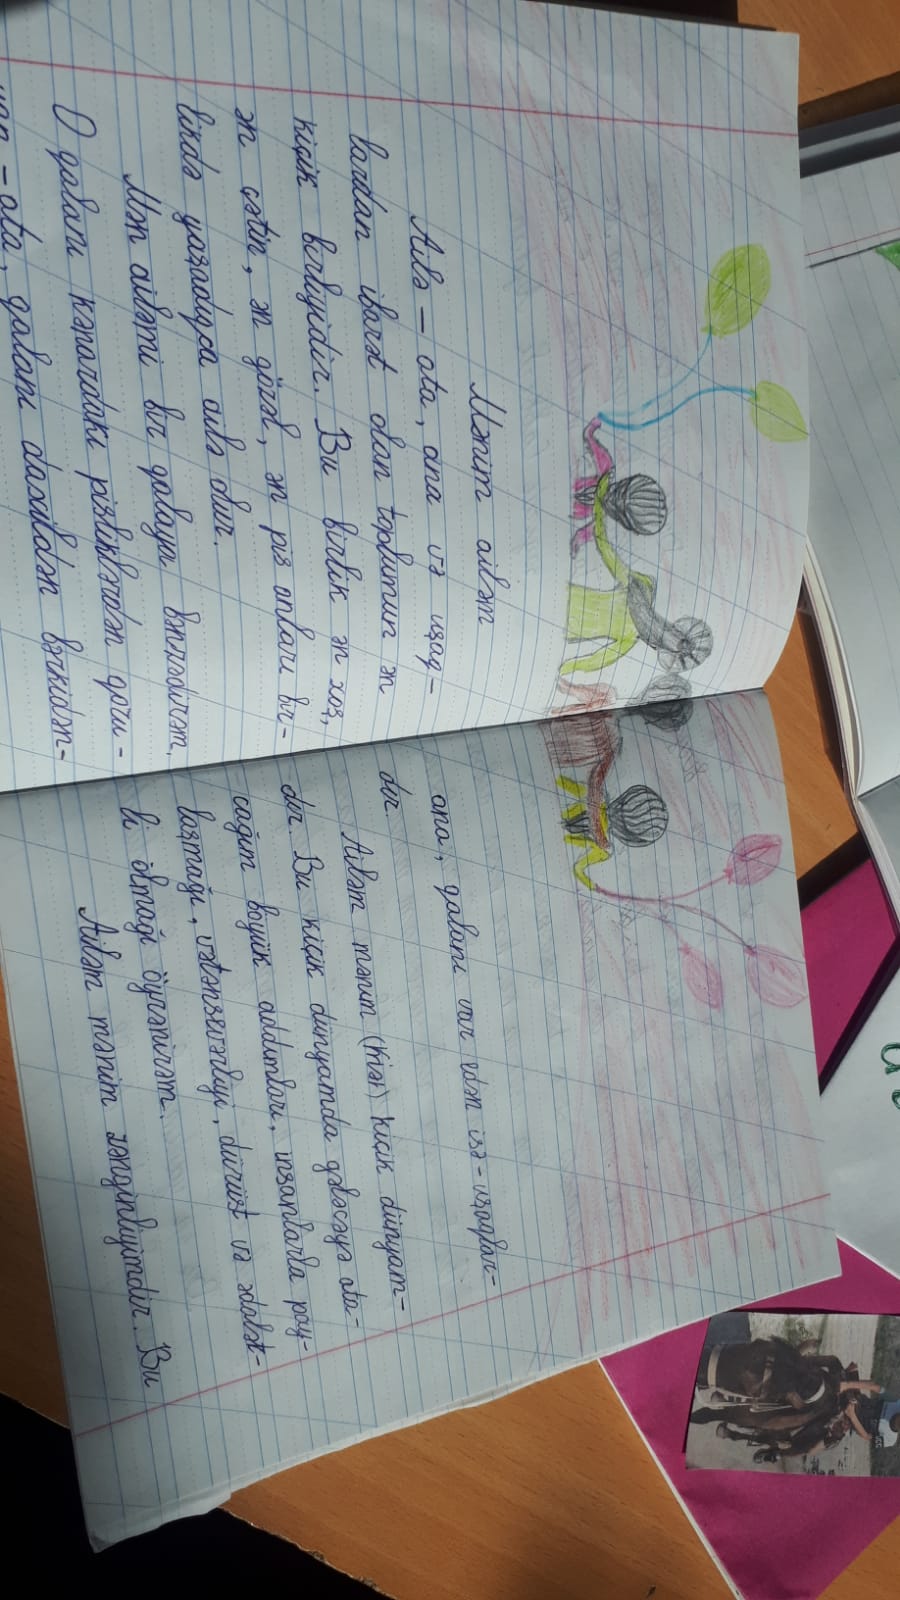 Mənim ailəm
Ailə – ata, ana və uşaq-
lardan ibarət olan toplumun ən
kiçik birliyidir. Bu birlik ən xoş,
ən çətin, ən gözəl, ən pis anları bir-
likdə yaşadıqca ailə olur.
Mən ailəmi bir qalaya bənzədirəm,
O qalanı kənardakı pisliklərdən qoru-
yan – ata, qalanı daxildən bərkidən-
ana, qalanı var edən isə – uşaqlar-
dır.
Ailəm mənim (kiçi) kiçik dünyam-
dır. Bu kiçik dünyamda gələcəyə ata-
cağım böyük addımları, insanlarla pay-
laşmağı, vətənsevərliyi, dürüst və ədalət-
li olmağı öyrənirəm.
Ailəm mənim zənginliyimdir. Bu